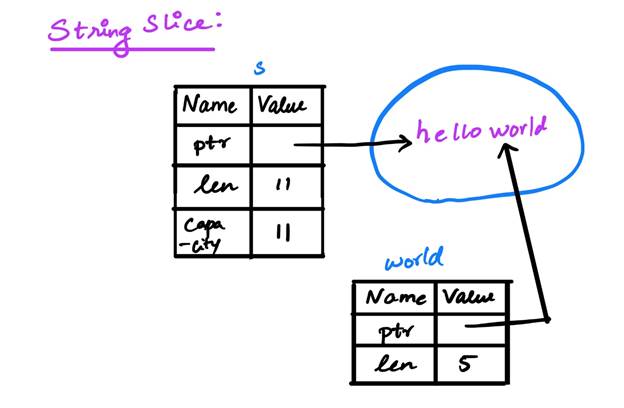 String Slice:
s
Name Value
ptr
len 11
Capa
-city 11
hello world
world
Name Value
ptr
len 5